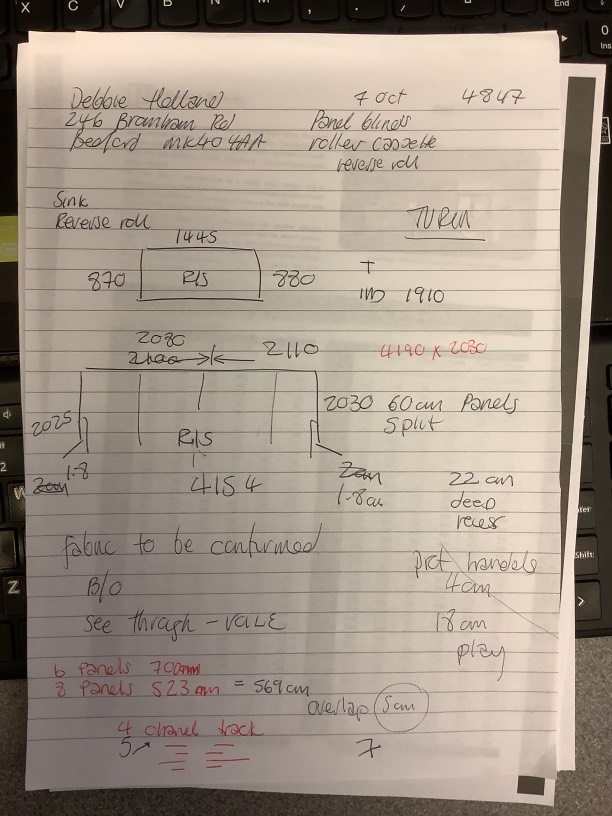 Debbie Holland 7 Oct 4847
246 Bromham Rd Panel blinds
Bedford MK40 4AA roller cassette
reverse roll
Sink
Reverse roll
TURIN
1445
870 R/S 880
T
IND 1910
2080
2100 2110
4190 x 2030
2025
2030 60cm Panels
Split
R/S
1.8
2cm
4154
2cm
1.8cm
22 cm
deep
recess
fabric to be confirmed
B/O
see through - VALE
prot handels
4cm
18cm
play
6 panels 700mm
8 panels 523mm = 569cm
overlap 5cm
4 chanel track
5
7